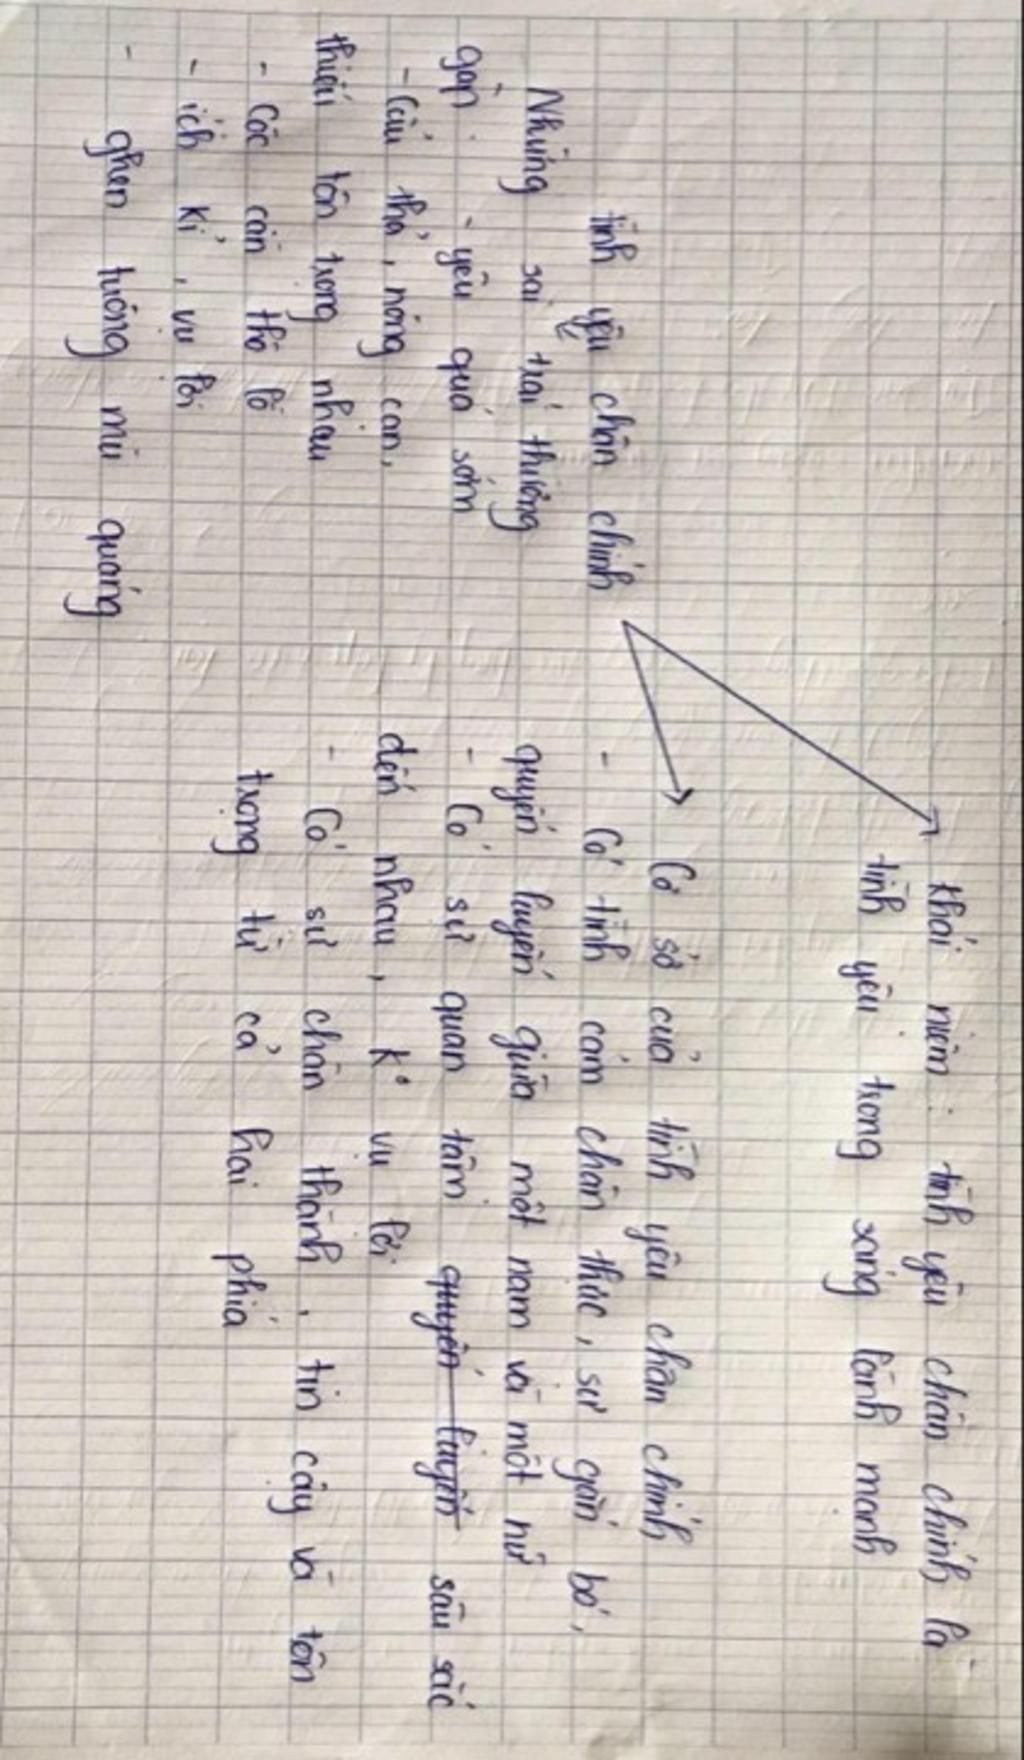 Khái niệm: tình yêu chân chính là
tình yêu trong sáng lành mạnh
tình yêu chân chính
Cơ sở của tình yêu chân chính
- Có tình cảm chân thực, sự gắn bó,
quyến luyến giữa một nam và một nữ
- Có sự quan tâm quyến luyến sâu sắc
đến nhau, k° vụ lợi
- Có sự chân thành, tin cậy và tôn
trọng từ cả hai phía
Những sai trái thường
gặp: - yêu quá sớm
- Cẩu thả, nóng cạn,
thiếu tôn trọng nhau
- Cốc cằn thô lỗ
- ích kỉ, vụ lợi
- ghen tuông mù quáng